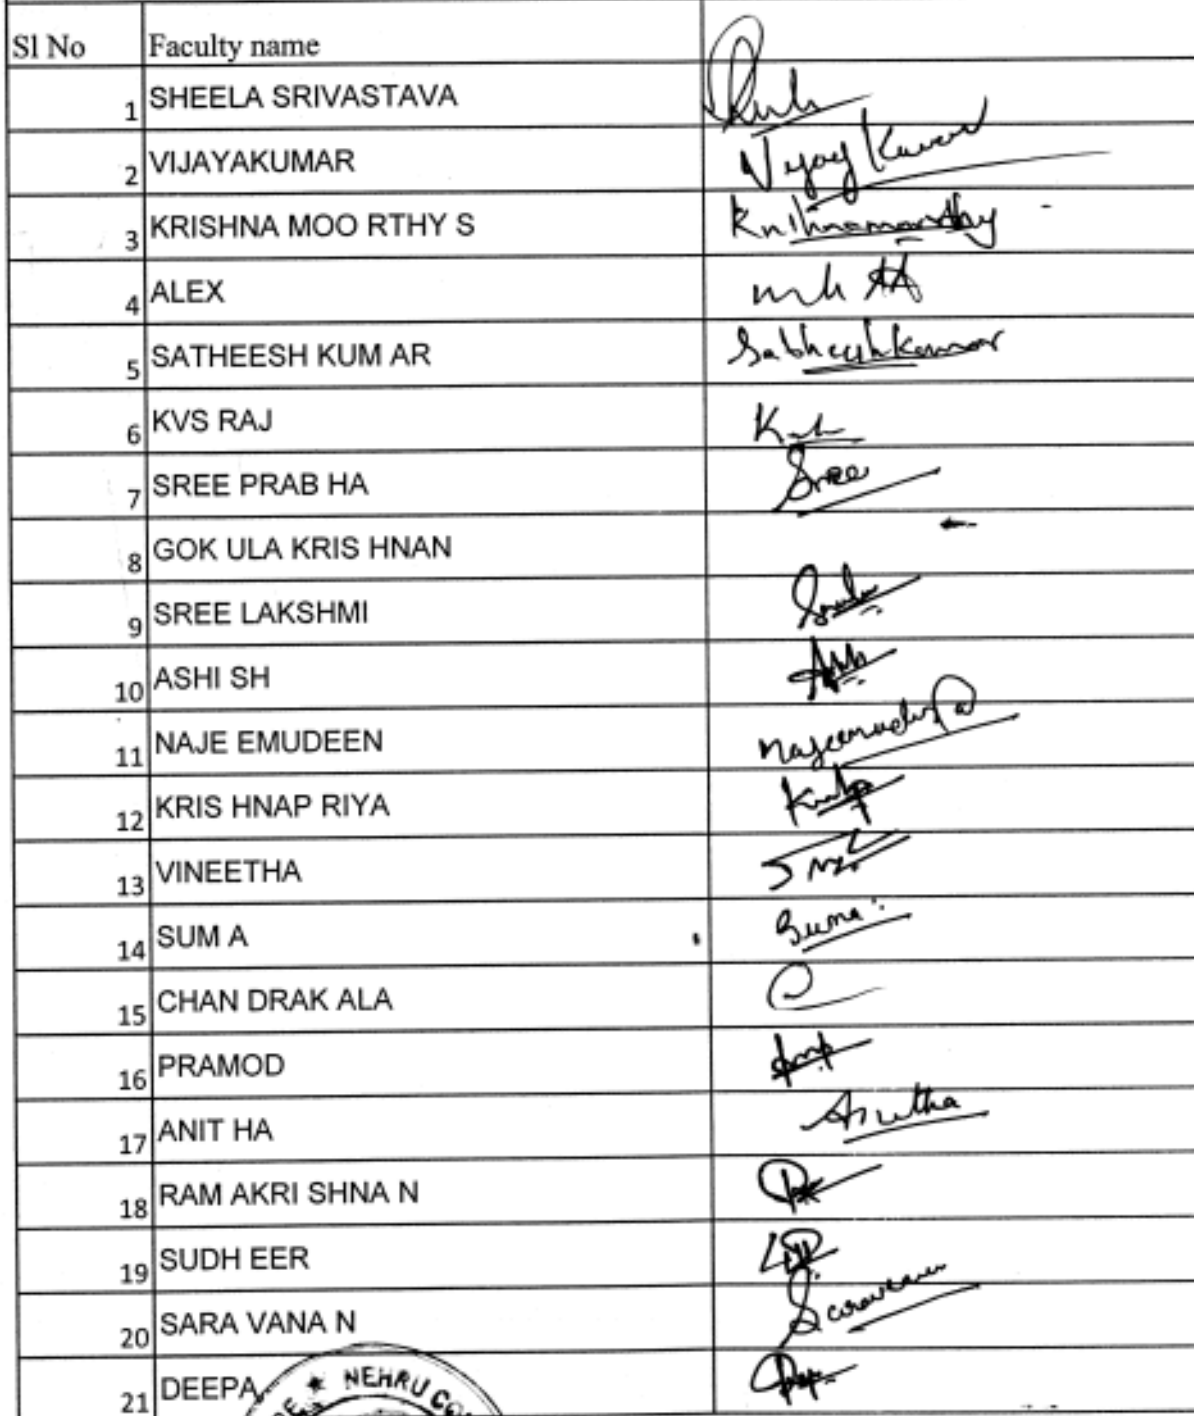 Sl No Faculty name
1 SHEELA SRIVASTAVA
2 VIJAYAKUMAR Vijay Kumar
3 KRISHNA MOO RTHY S Krishnamoorthy
4 ALEX
5 SATHEESH KUM AR Satheeshkumar
6 KVS RAJ
7 SREE PRAB HA Sree
8 GOK ULA KRIS HNAN
9 SREE LAKSHMI
10 ASHI SH
11 NAJE EMUDEEN Najeemudeen
12 KRIS HNAP RIYA
13 VINEETHA
14 SUM A Suma
15 CHAN DRAK ALA
16 PRAMOD
17 ANIT HA Anitha
18 RAM AKRI SHNA N
19 SUDH EER
20 SARA VANA N Saravanan
21 DEEPA
NEHRU